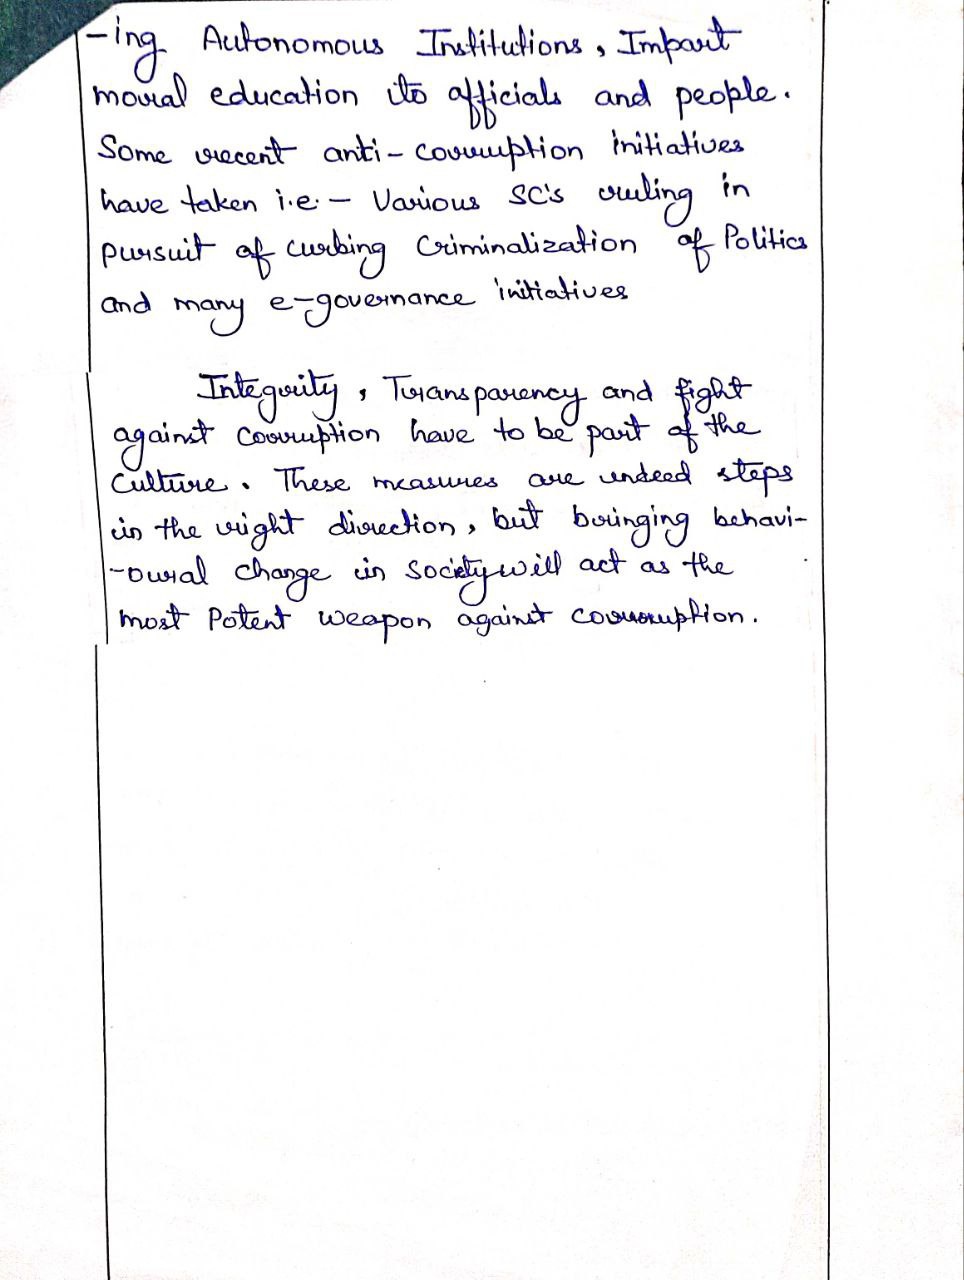 -ing Autonomous Institutions, Impart
moral education to officials and people.
Some recent anti-corruption initiatives
have taken i.e. - Various SC's ruling in
pursuit of curbing Criminalization of Politics
and many e-governance initiatives
Integrity, Transparency and fight
against corruption have to be part of the
Culture. These measures are indeed steps
in the right direction, but bringing behavi-
-oural change in society will act as the
most Potent weapon against corruption.